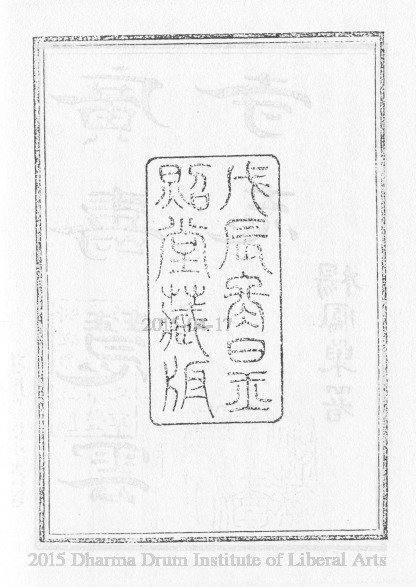 戊辰冬日玉
照堂藏版
2015 Dharma Drum Institute of Liberal Arts